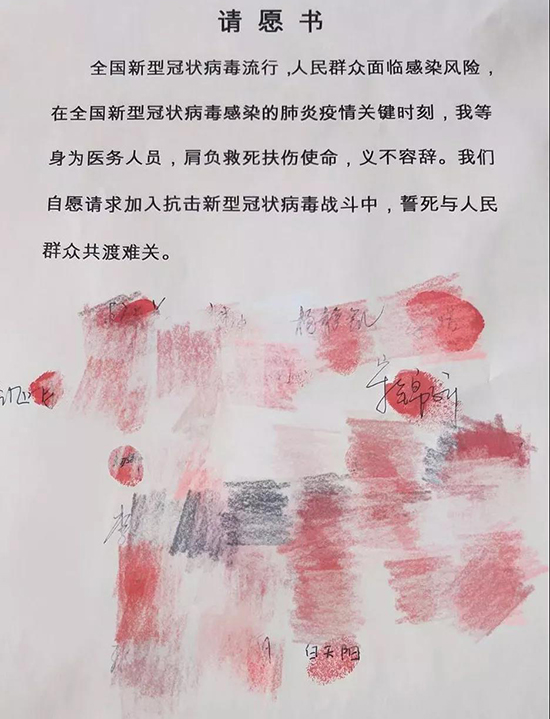 请愿书
全国新型冠状病毒流行,人民群众面临感染风险,
在全国新型冠状病毒感染的肺炎疫情关键时刻,我等
身为医务人员,肩负救死扶伤使命,义不容辞。我们
自愿请求加入抗击新型冠状病毒战斗中,誓死与人民
群众共渡难关。
白天阳